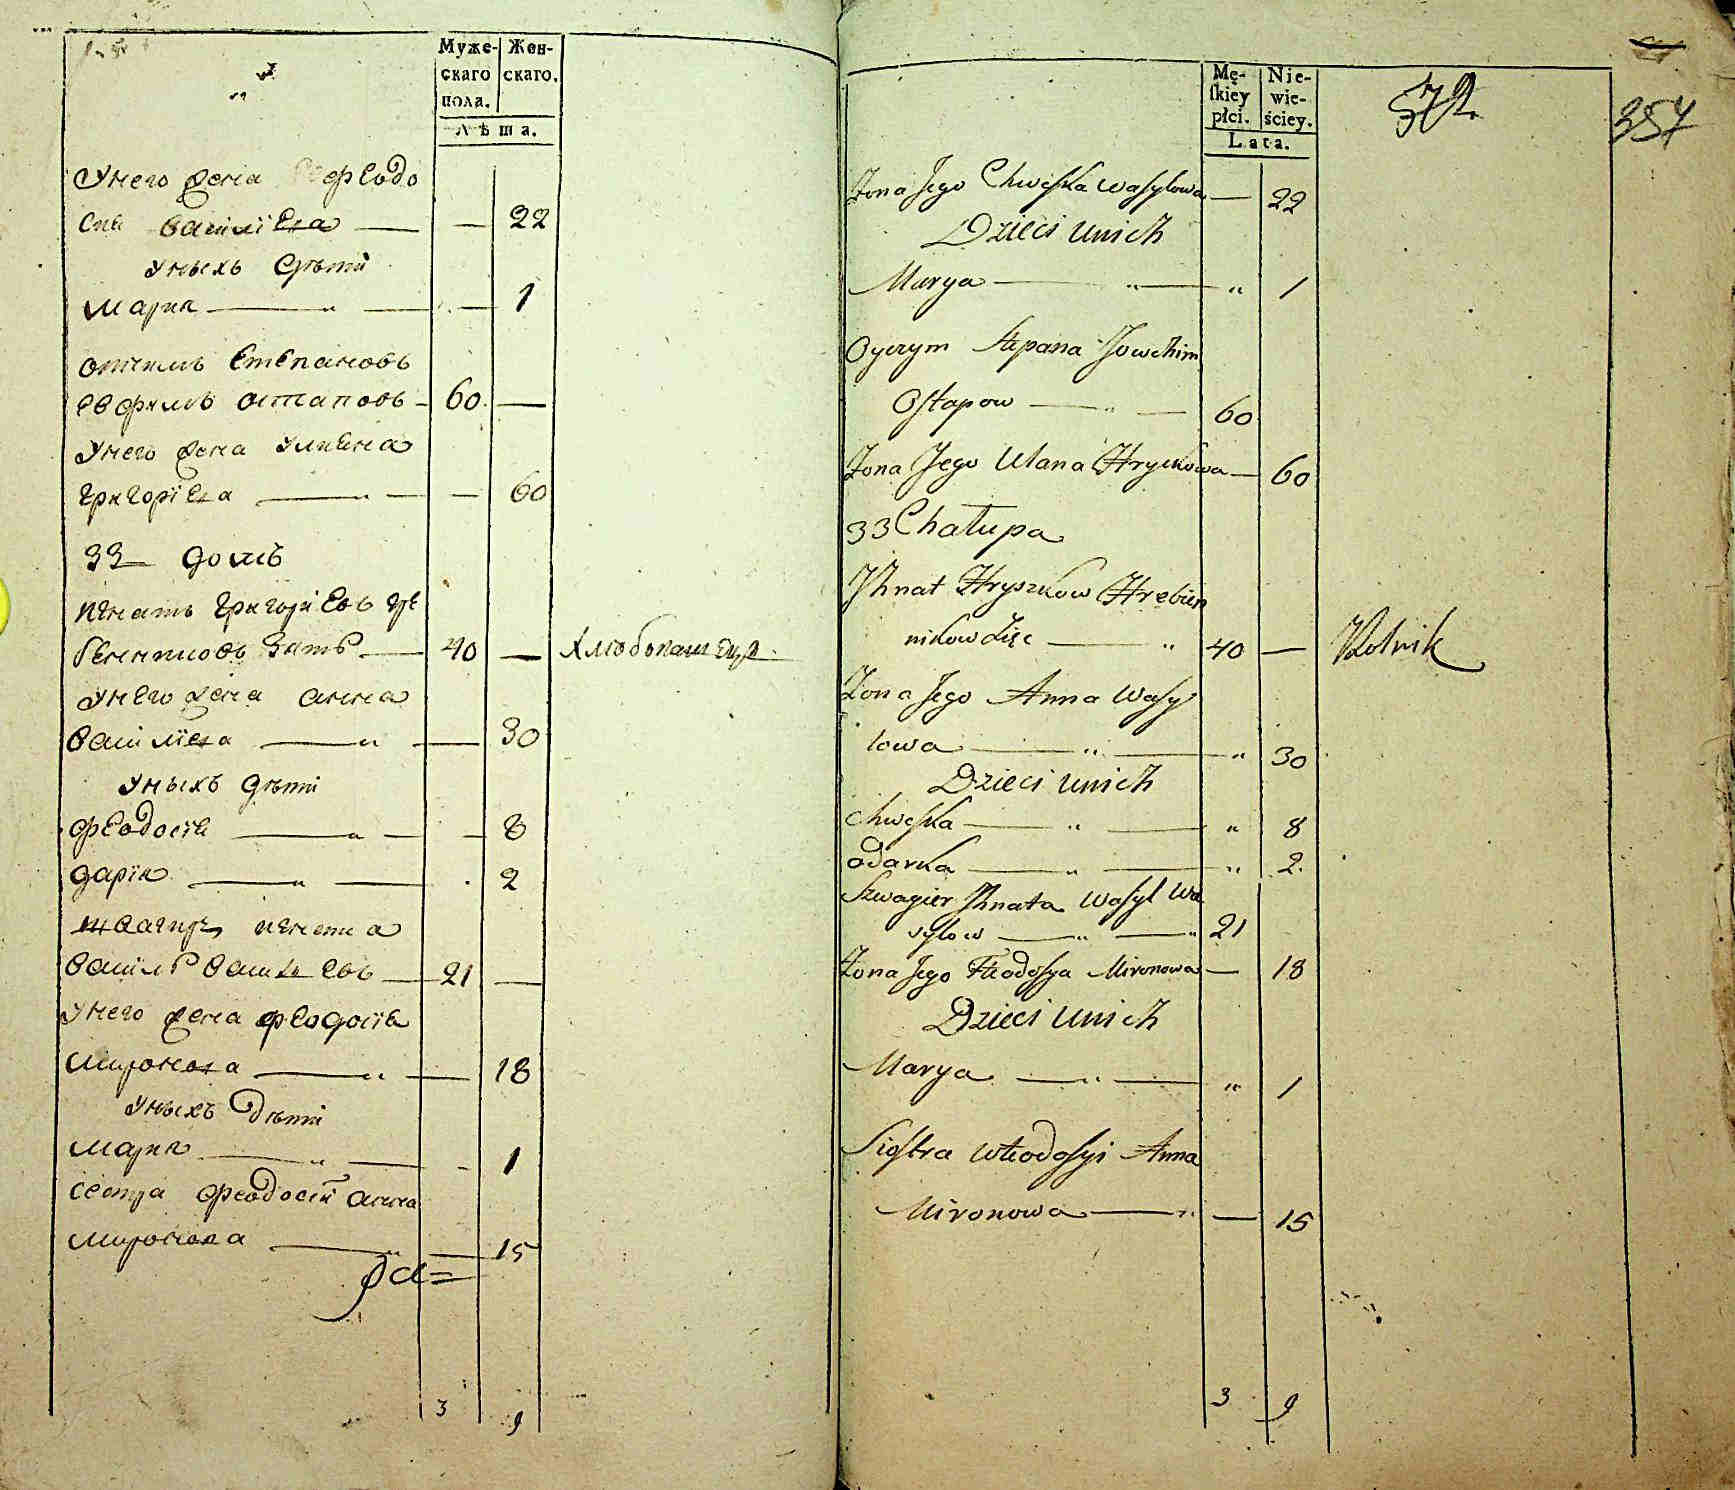 Муже-
скаго
пола.
Жен-
скаго.
Лѣта.
Унего жена Феодо
сия Василіева — — 22
Уныхъ Дѣти
Мария — " — — 1
отчимъ Степановъ
Евфимъ Остаповъ - 60. —
Унего жена Улияна
Григоріева — " — — 60
33 домъ
Игнатъ Григоріевъ Гре
бенниковъ Зять — 40 — Хлѣбопашецъ
Унего жена Анна
Василіева — " — 30
Уныхъ Дѣти
Феодосія — " — — 8
Дарія — " — . 2
Швагиръ Игната
Василь Васильевъ — 21 —
Унего жена Феодосія
Миронова — " — 18
Уныхъ Дѣти
Мария — " — - 1
Сестра Феодосіи Анна
Миронова — " — 15
3 9
Mę-
skiey
płci.
Nie-
wie-
ściey.
Lata.
372.
357
Żona Jego Chweska Wasylowa — 22
Dzieci Unich
Marya — " — " 1
Oyczym Stepana Jowchim
Ostapow — " — 60
Żona Jego Ulana Hryckowa — 60
33 Chałupa
Ihnat Hryszkow Hrebien
nikow Zięc — " 40 — Rolnik
Żona Jego Anna Wasy
lowa — " — " 30
Dzieci Unich
Chweska — " — " 8
Odarka — " — " 2.
Szwagier Ihnata Wasyl Wa
sylow — " — " 21
Żona Jego Fteodosya Mironowa — 18
Dzieci Unich
Marya — " — " 1
Siostra Wteodosyi Anna
Mironowa — " — 15
3 9